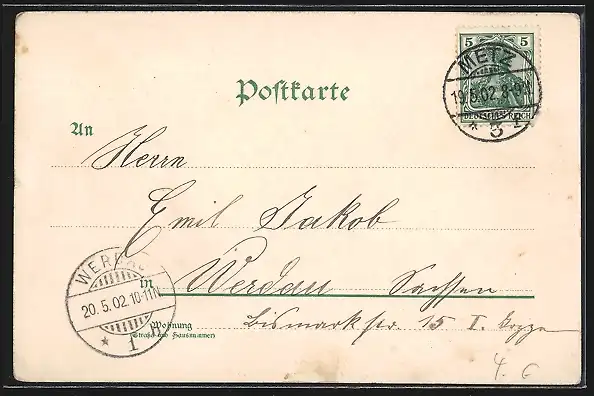 5 5
DEUTSCHES REICH
METZ
19.5.02. 8-9N
* 3 F
Postkarte
An
Herrn
Emil Jakob
in Werdau Sachsen
WERDAU
20.5.02.10-11N
* 1
Wohnung
(Straße und Hausnummer)
Bismarkstr. 15 I.
4. G